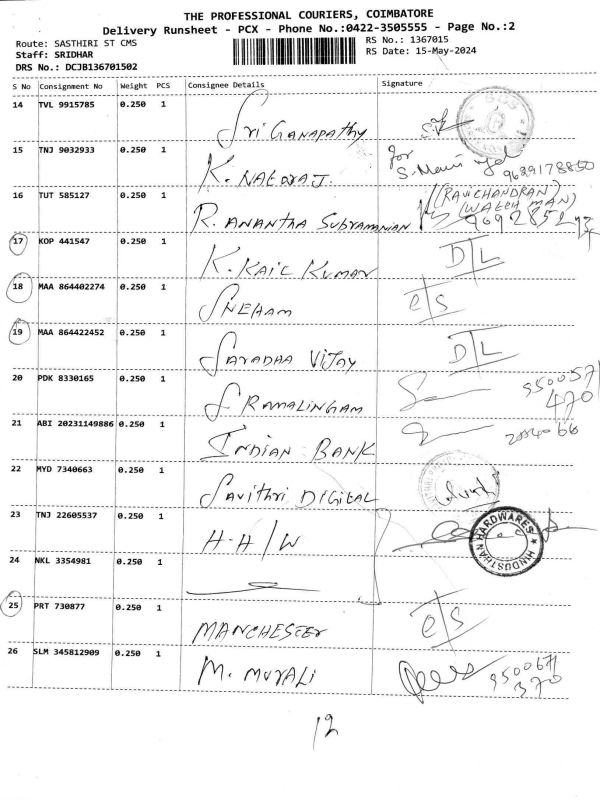 THE PROFESSIONAL COURIERS, COIMBATORE
Delivery Runsheet - PCX - Phone No.:0422-3505555 - Page No.:2
Route: SASTHIRI ST CMS RS No.: 1367015
Staff: SRIDHAR RS Date: 15-May-2024
DRS No.: DCJB136701502
S No Consignment No Weight PCS Consignee Details Signature
14 TVL 9915785 0.250 1 Sri Ganapathy
15 TNJ 9032933 0.250 1 K. NATARAJ. for
S. Mani 9629178850
16 TUT 585127 0.250 1 R. ANANTHA Subramanian (RAVICHANDRAN)
(WATCH MAN)
17 KOP 441547 0.250 1 K. KAIL KUMAR D/L
18 MAA 864402274 0.250 1 SNEHAM e/s
19 MAA 864422452 0.250 1 SARADHA VIJAY D/L
20 PDK 8330165 0.250 1 S RAMALINGAM 950057/
470
21 ABI 20231149886 0.250 1 INDIAN BANK
22 MYD 7340663 0.250 1 Savithri DIGITAL
23 TNJ 22605537 0.250 1 H-H/W HINDUSTHAN HARDWARES
24 NKL 3354981 0.250 1
25 PRT 730877 0.250 1 MANCHESTER e/s
26 SLM 345812909 0.250 1 M. MURALI 950067/
370
12